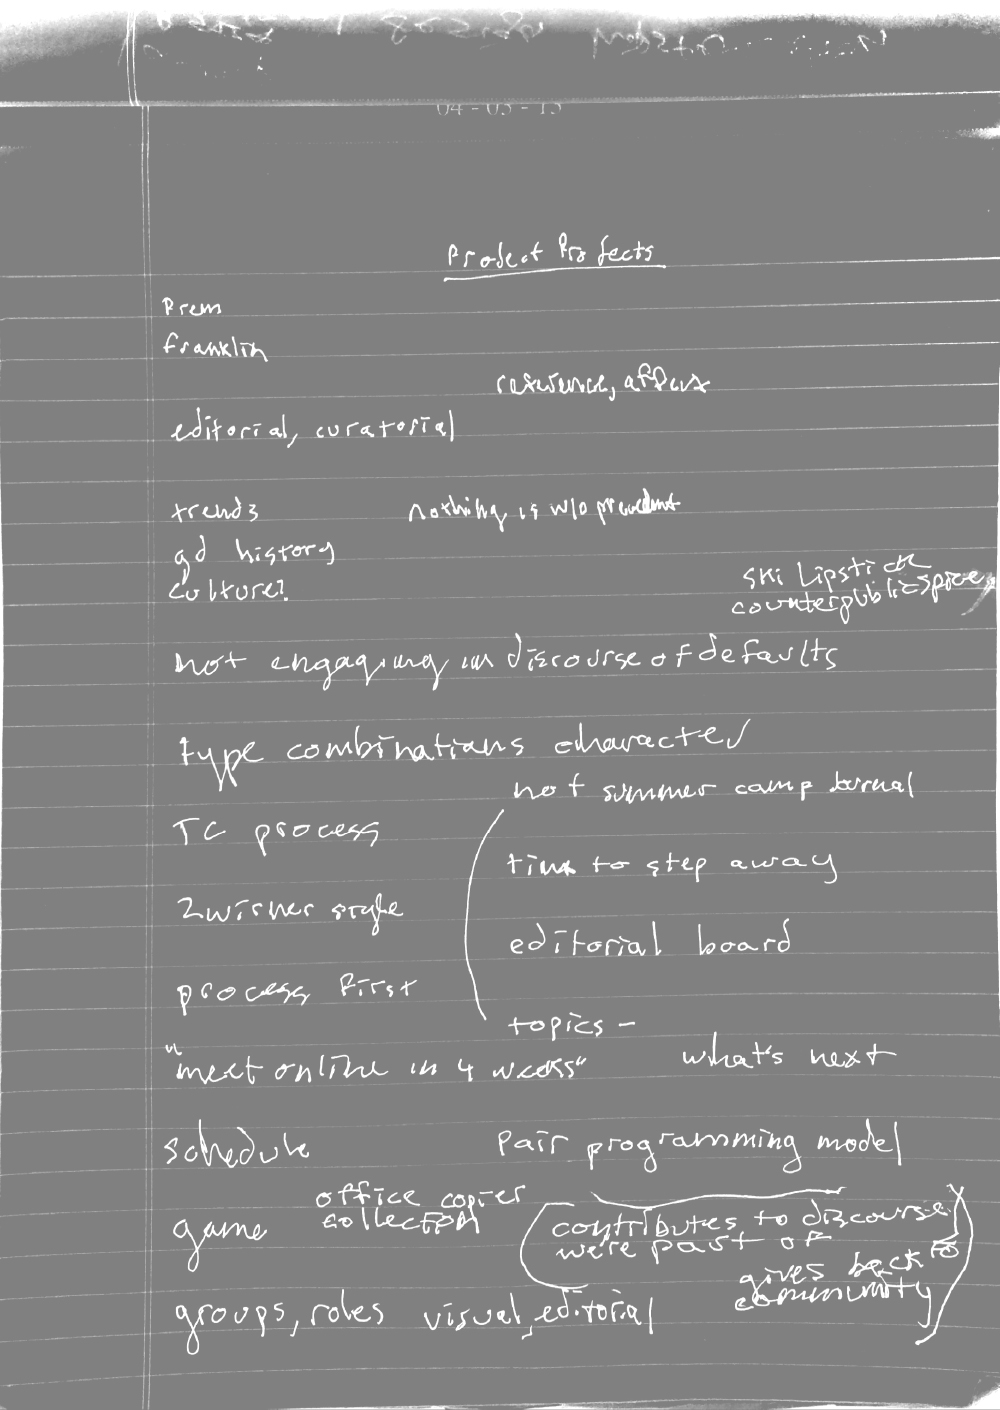 04-05-15
Project Projects
Prem
franklin
reference, affect
editorial, curatorial
trends
nothing is w/o precedent
gd history
culture?
ski Lipstick
counterpublic
not engaging in discourse of defaults
type combinations character
not summer camp
TC process
time to step away
Zwirner style
editorial board
process first
topics -
"meet online in 4 weeks"
what's next
schedule
pair programming model
office copier
collection
game
contributes to discourse
were part of
gives back to
community
groups, roles visual, editorial